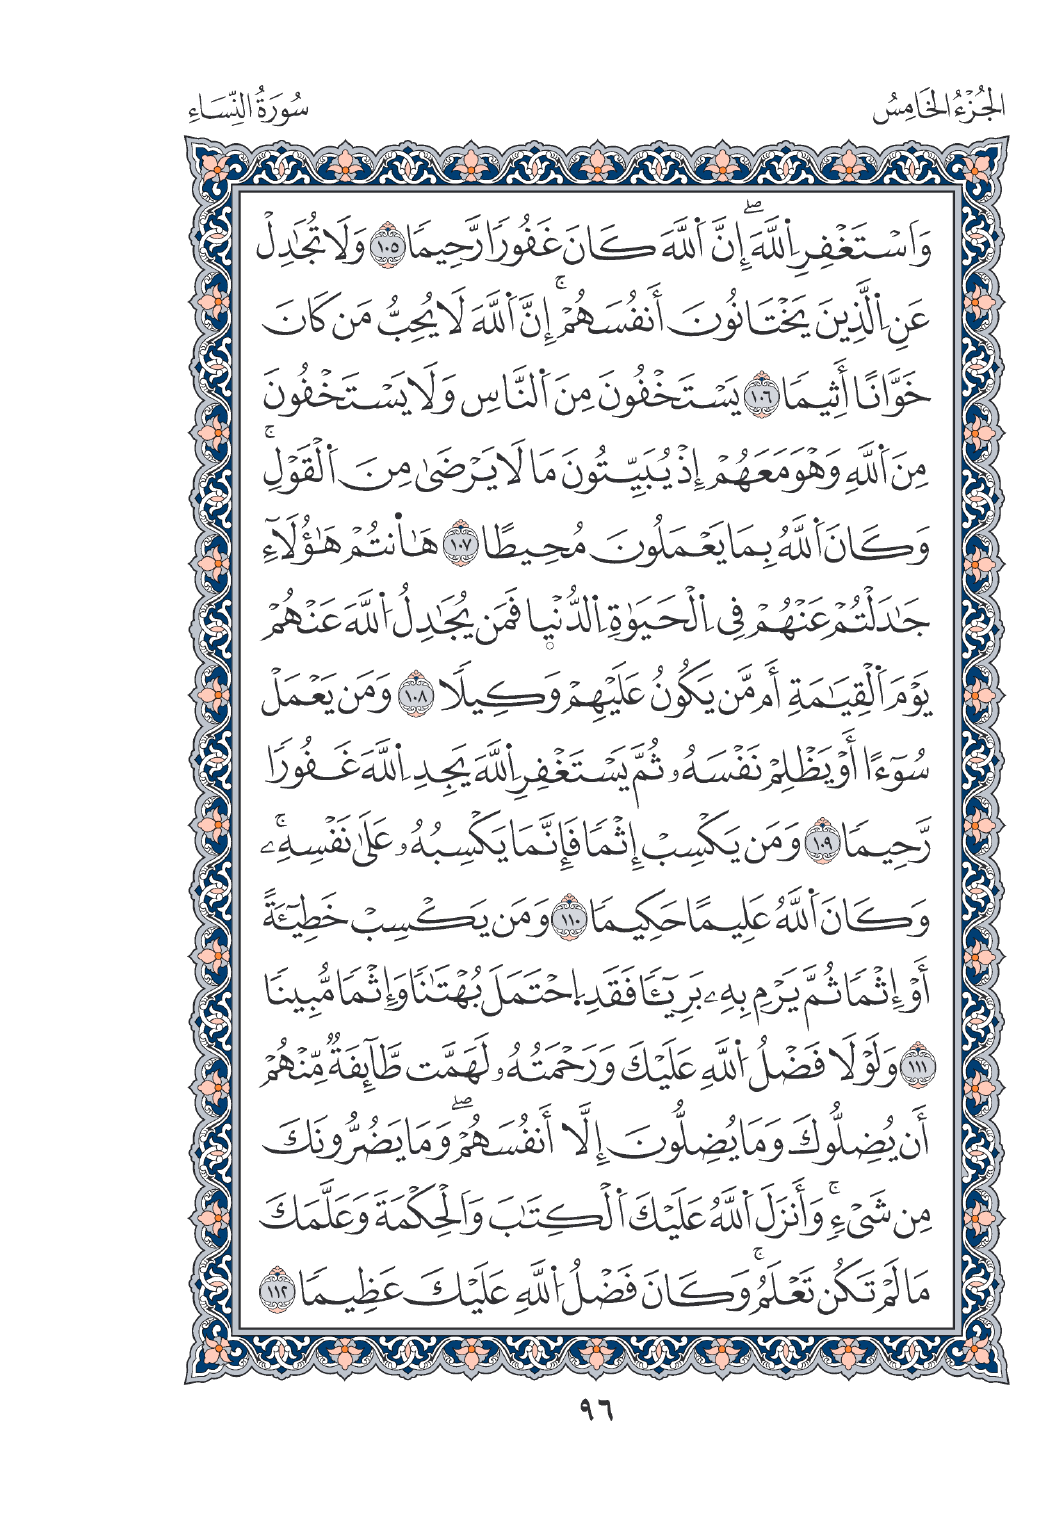 الجُزْءُ الخَامِسُ
سُورَةُ النِّسَاءِ
وَاَسْتَغْفِرِ اِللَّهَۖ إِنَّ اَللَّهَ كَانَ غَفُورٗا رَّحِيمٗا ١٠٥ وَلَا تُجَٰدِلْ
عَنِ اِلَّذِينَ يَخْتَانُونَ أَنفُسَهُمْۚ إِنَّ اَللَّهَ لَا يُحِبُّ مَن كَانَ
خَوَّانًا أَثِيمٗا ١٠٦ يَسْتَخْفُونَ مِنَ اَلنَّاسِ وَلَا يَسْتَخْفُونَ
مِنَ اَللَّهِ وَهْوَ مَعَهُمْ إِذْ يُبَيِّتُونَ مَا لَا يَرْضَىٰ مِنَ اَلْقَوْلِۚ
وَكَانَ اَللَّهُ بِمَا يَعْمَلُونَ مُحِيطًا ١٠٧ هَٰأنتُمْ هَٰؤُلَآءِ
جَٰدَلْتُمْ عَنْهُمْ فِي اِلْحَيَوٰةِ اِلدُّنْيا فَمَن يُجَٰدِلُ اُللَّهَ عَنْهُمْ
يَوْمَ اَلْقِيَٰمَةِ أَم مَّن يَكُونُ عَلَيْهِمْ وَكِيلٗا ١٠٨ وَمَن يَعْمَلْ
سُوٓءًا أَوْ يَظْلِمْ نَفْسَهُۥ ثُمَّ يَسْتَغْفِرِ اِللَّهَ يَجِدِ اِللَّهَ غَفُورٗا
رَّحِيمٗا ١٠٩ وَمَن يَكْسِبْ إِثْمٗا فَإِنَّمَا يَكْسِبُهُۥ عَلَىٰ نَفْسِهِۦۚ
وَكَانَ اَللَّهُ عَلِيمًا حَكِيمٗا ١١٠ وَمَن يَكْسِبْ خَطِيٓـَٔةً
أَوْ إِثْمٗا ثُمَّ يَرْمِ بِهِۦ بَرِيٓـٔٗا فَقَدِ اِحْتَمَلَ بُهْتَٰنٗا وَإِثْمٗا مُّبِينٗا
١١١ وَلَوْلَا فَضْلُ اُللَّهِ عَلَيْكَ وَرَحْمَتُهُۥ لَهَمَّت طَّآئِفَةٞ مِّنْهُمْ
أَن يُضِلُّوكَ وَمَا يُضِلُّونَ إِلَّا أَنفُسَهُمْۖ وَمَا يَضُرُّونَكَ
مِن شَيْءٖۚ وَأَنزَلَ اَللَّهُ عَلَيْكَ اَلْكِتَٰبَ وَالْحِكْمَةَ وَعَلَّمَكَ
مَا لَمْ تَكُن تَعْلَمُۚ وَكَانَ فَضْلُ اُللَّهِ عَلَيْكَ عَظِيمٗا ١١٢
٩٦